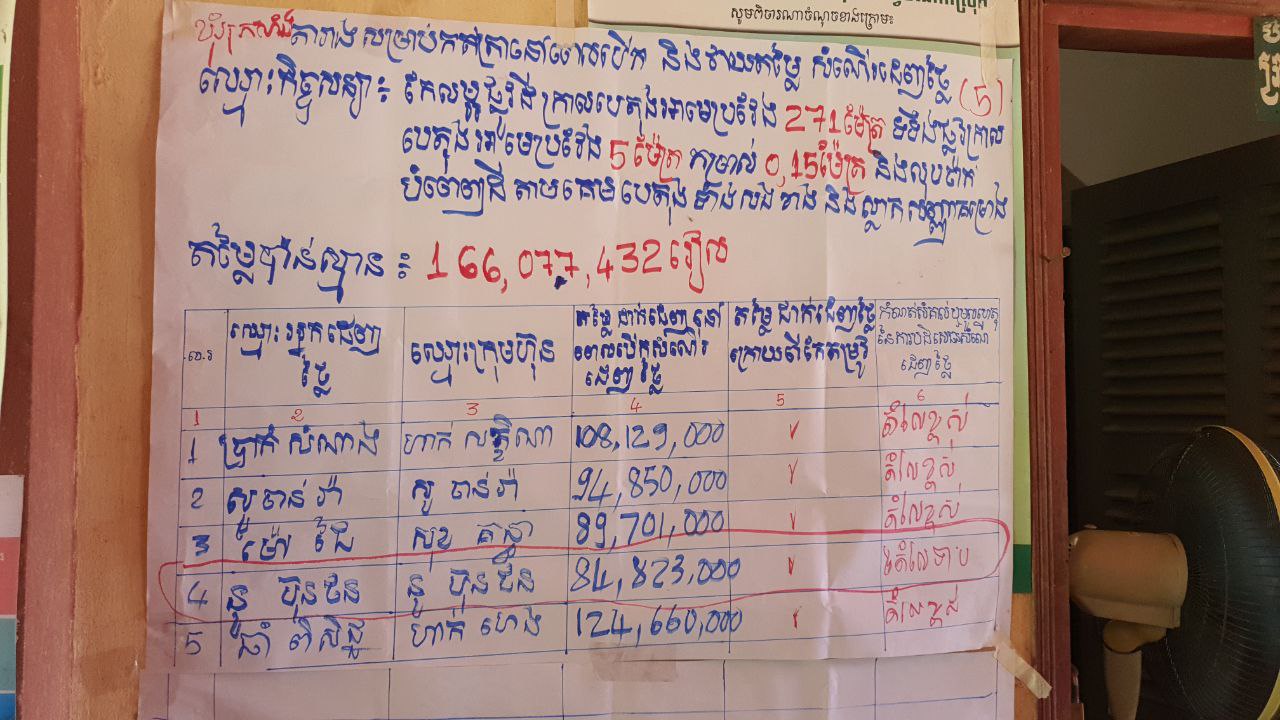 សូមពិចារណាចំណុចខាងក្រោម៖
តារាងសម្រាប់កត់ត្រានៅពេលបើក និងវាយតម្លៃ សំណើរដេញថ្លៃ (5)
ឈ្មោះកិច្ចសន្យា៖ កែលម្អផ្លូវដី ក្រាលបេតុងអាមេប្រវែង 271ម៉ែត្រ ទទឹងផ្លូវក្រាល
បេតុងអាមេប្រវែង 5ម៉ែត្រ កម្រាស់ 0,15ម៉ែត្រ និងលុបចាក់
បំពេញដី តាមគែមបេតុង ទាំងសងខាង និងស្លាកសញ្ញាគម្រោង
តម្លៃប៉ាន់ស្មាន ៖ 166,077,432រៀល
ល.រ ឈ្មោះអ្នកដេញថ្លៃ ឈ្មោះក្រុមហ៊ុន តម្លៃដាក់ដេញនៅពេលបើកសំណើរដេញថ្លៃ តម្លៃដាក់ដេញថ្លៃក្រោយពីកែតម្រូវ កំណត់សំគាល់ឬមូលហេតុនៃការបដិសេធសំណើដេញថ្លៃ
1 2 3 4 5 6
1 ប្រាក់ សំណាង ហាក់ សត្ថិណា 108,129,000 ✓ តំលៃខ្ពស់
2 សូ ចាន់រ៉ា សូ ចាន់រ៉ា 94,850,000 ✓ តំលៃខ្ពស់
3 ម៉ៅ ដៃ សុខ គន្ធា 89,701,000 ✓ តំលៃខ្ពស់
4 នូ ប៊ុនថន នូ ប៊ុនថន 84,823,000 ✓ តំលៃទាប
5 ឆាំ ពិសិដ្ឋ ហាក់ ហេង 124,660,000 ✓ តំលៃខ្ពស់